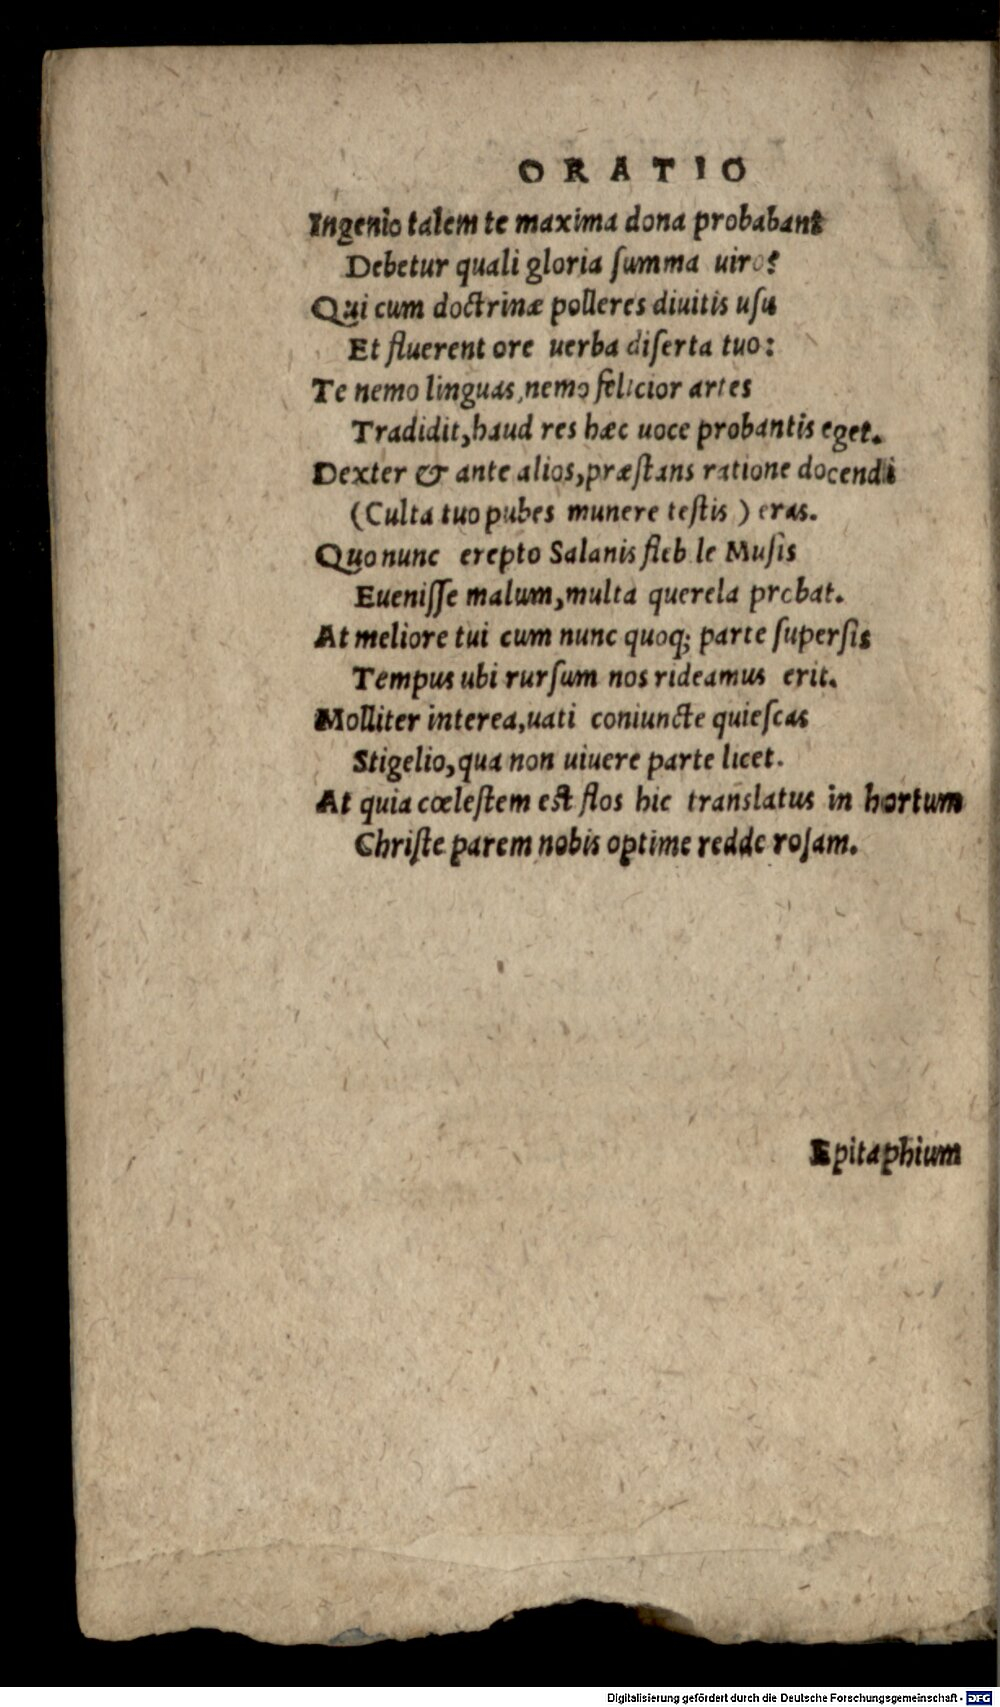 ORATIO
Ingenio talem te maxima dona probabant
Debetur quali gloria ſumma uiro?
Qui cum doctrinæ polleres diuitis uſu
Et fluerent ore uerba diſerta tuo:
Te nemo linguas, nemo felicior artes
Tradidit, haud res hæc uoce probantis eget.
Dexter & ante alios, præſtans ratione docendi
(Culta tuo pubes munere teſtis) eras.
Quo nunc erepto Salanis fleb le Muſis
Eueniſſe malum, multa querela probat.
At meliore tui cum nunc quoq; parte ſuperſis
Tempus ubi rurſum nos rideamus erit.
Molliter interea, uati coniuncte quieſcas
Stigelio, qua non uiuere parte licet.
At quia cœleſtem eſt flos hic translatus in hortum
Chriſte parem nobis optime redde roſam.
Epitaphium
Digitalisierung gefördert durch die Deutsche Forschungsgemeinschaft - DFG